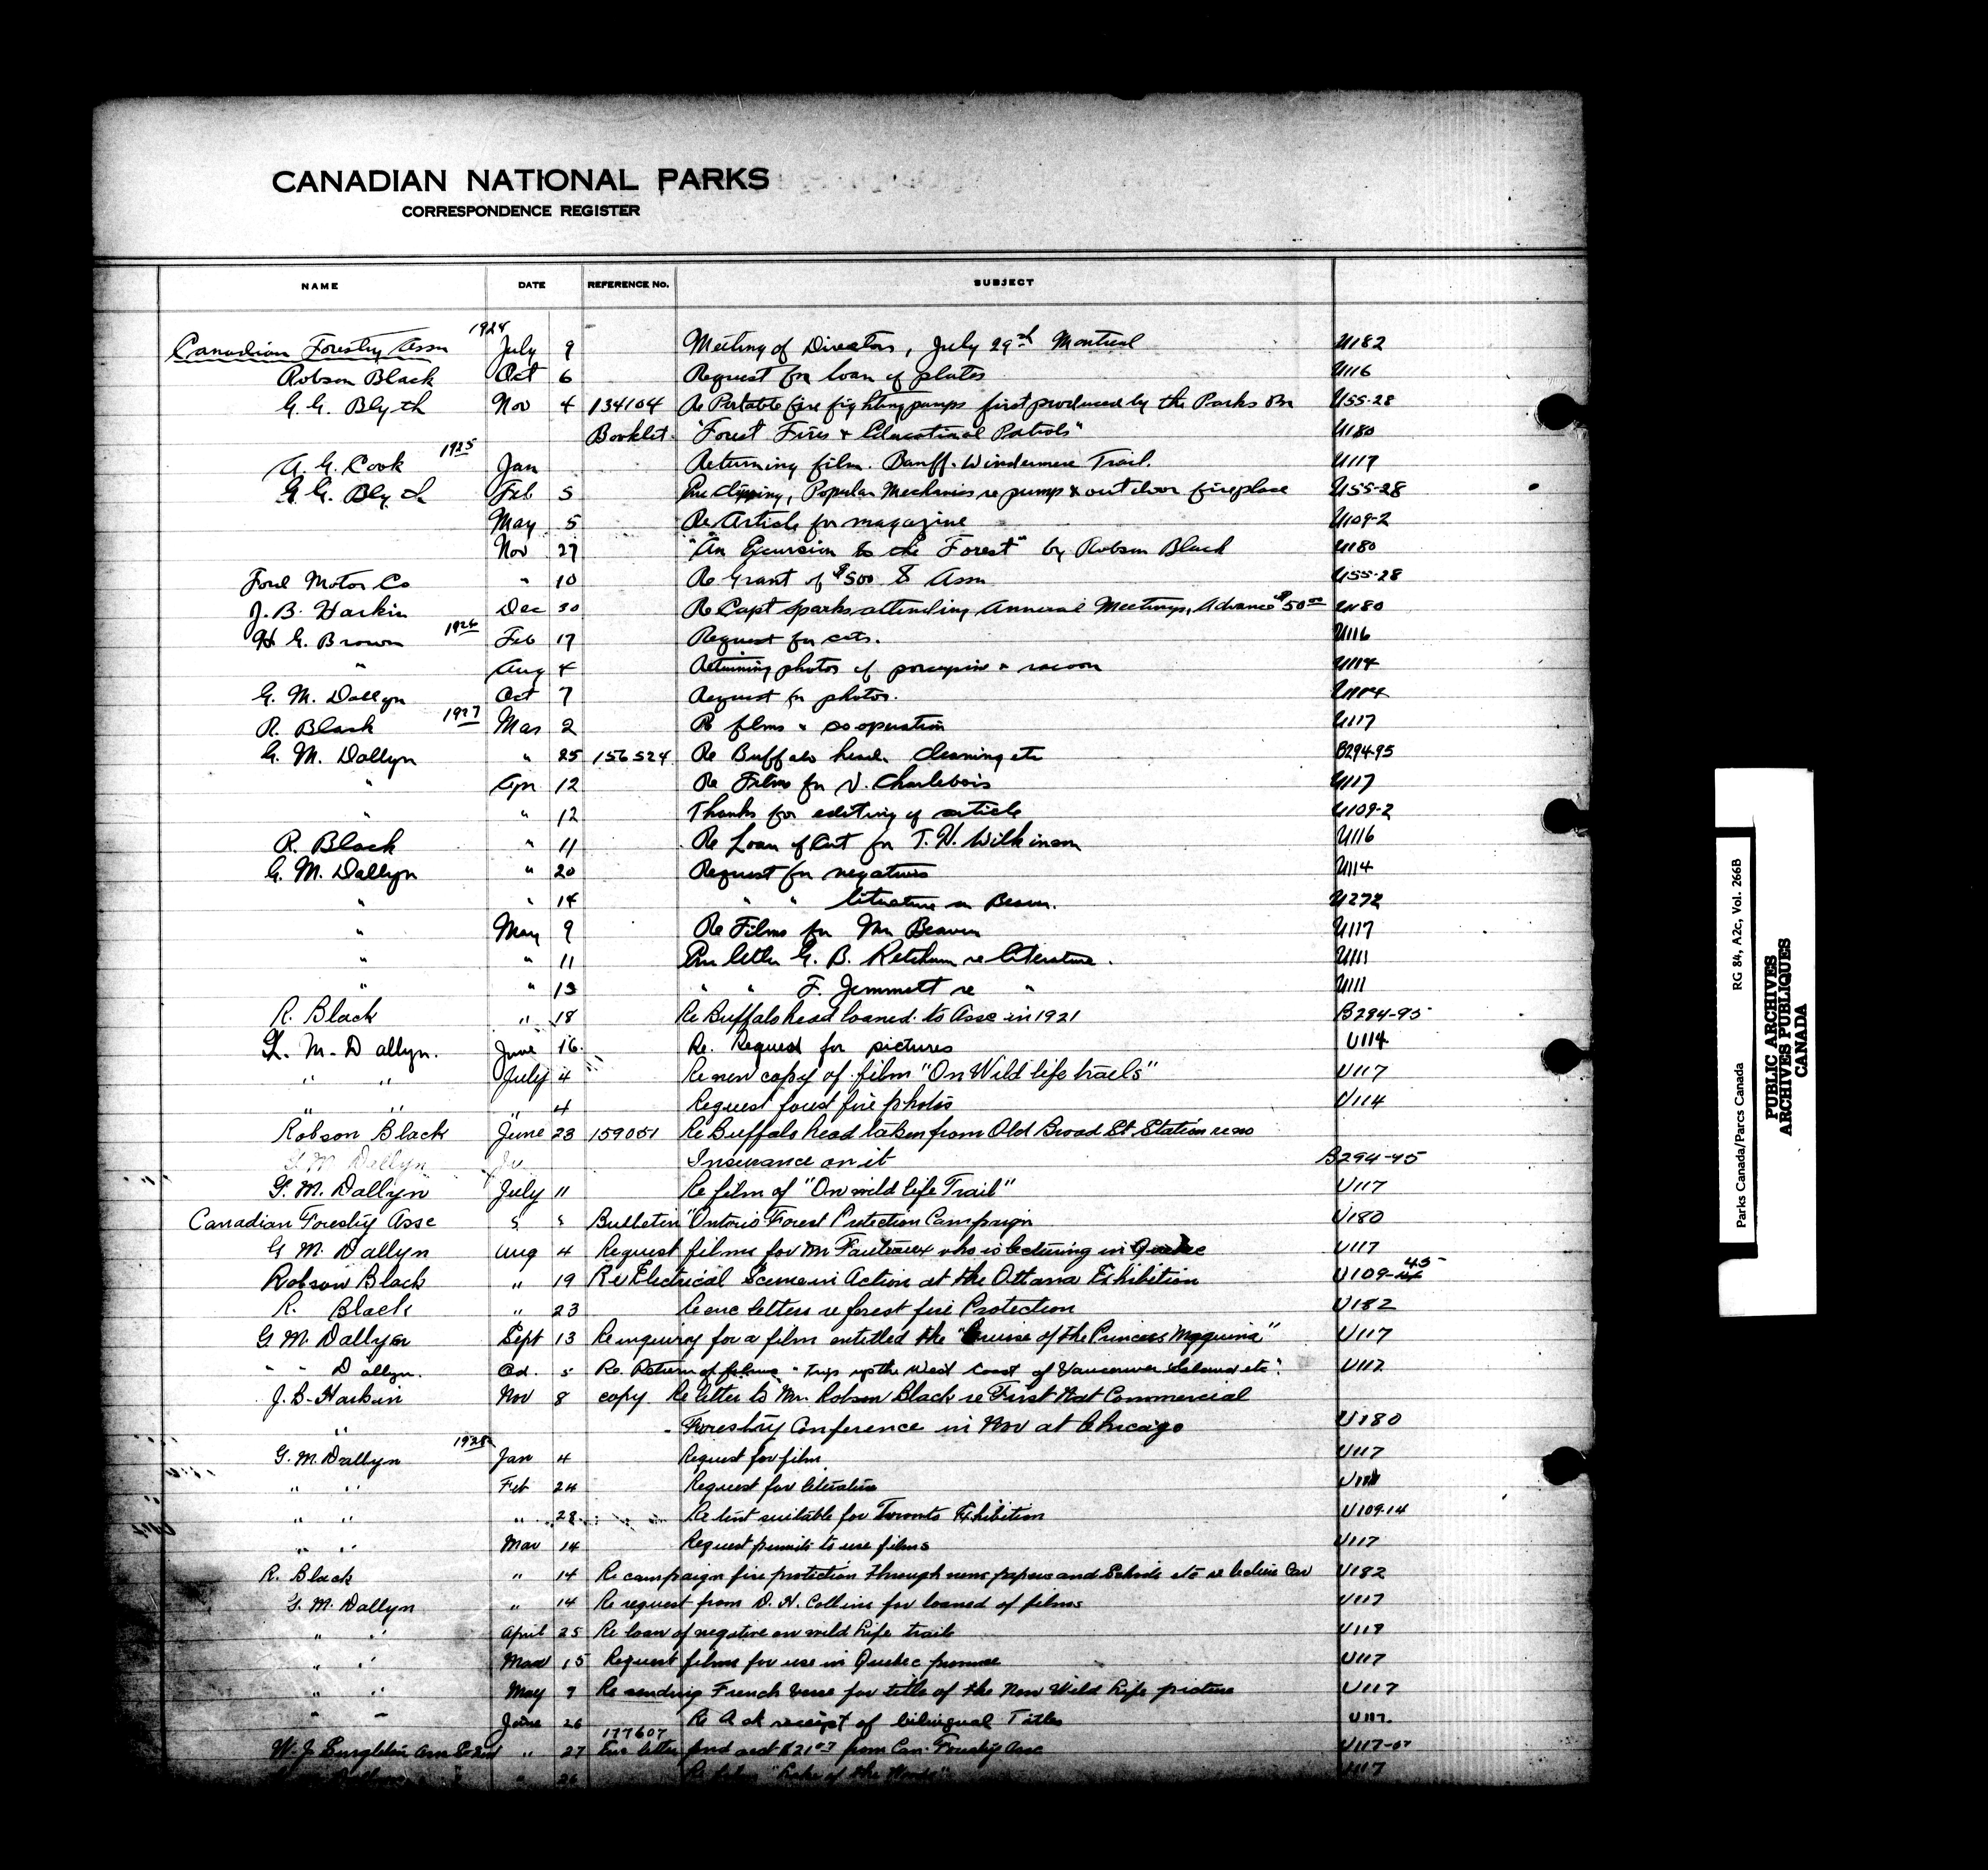 CANADIAN NATIONAL PARKS
CORRESPONDENCE REGISTER
NAME DATE REFERENCE No. SUBJECT
1924
Canadian Forestry Assn July 9 Meeting of Directors, July 29th Montreal U182
Robson Black Oct 6 Request for loan of plates U116
G. G. Blyth Nov 4 134104 Re Portable fire fighting pumps first produced by the Parks Bn U55-28
Booklet. "Forest Fires & Educational Patrols" U180
1925
A. G. Cook Jan Returning film. Banff-Windermere Trail. U117
G. G. Blyth Feb 5 Enc clipping, Popular Mechanics re pump & outdoor fireplace U55-28
May 5 Re Article for magazine U109-2
Nov 27 "An Excursion to the Forest" by Robson Black U180
Ford Motor Co " 10 Re Grant of $500 to Assn U55-28
J. B. Harkin Dec 30 Re Capt Sparks attending Annual Meetings, Advance $50 00 U180
1926
H G. Brown Feb 17 Request for cuts. U116
" Aug 4 Returning photos of porcupine & racoon U114
G. M. Dallyn Oct 7 Request for photos. U114
1927
R. Black Mar 2 Re films & cooperation U117
G. M. Dallyn " 25 156524 Re Buffalo head. Cleaning etc B294-95
" Apr 12 Re Films for V. Charlebois U117
" " 12 Thanks for editing of article U109-2
R. Black " 11 Re Loan of Cut for T. H. Wilkinson U116
G. M. Dallyn " 20 Request for negatives U114
" " 14 " " literature on Beaver. U272
" May 9 Re Films for Mr Beaven U117
" " 11 Enc letter G. B. Ketchum re literature. U111
" " 13 " " F. Jemmett re " U111
R. Black " 18 Re Buffalo head loaned to Assc in 1921 B294-95
G. M. Dallyn. June 16. Re. Request for pictures U114
" " July 4 Re new copy of film "On Wild life trails" U117
" " " 4 Request forest fire photos U114
Robson Black June 23 159051 Re Buffalo head taken from Old Broad St. Station re no
G. M. Dallyn Ju Insurance on it B294-95
G. M. Dallyn July 11 Re film of "On wild life Trail" U117
Canadian Forestry Assc " " Bulletin "Ontario Forest Protection Campaign U180
G M. Dallyn Aug 4 Request films for Mr Fauteaux who is lecturing in Quebec U117
Robson Black " 19 Re Electrical Scenes in Action at the Ottawa Exhibition U109-45
R. Black " 23 Re enc letters re forest fire Protection U182
G M. Dallyn Sept 13 Re inquiry for a film entitled the "Cruise of the Princess Maquina" U117
" " Dallyn. Oct. 5 Re. Return of films "Trip up the West Coast of Vancouver Island etc". U117
J. B. Harkin Nov 8 copy Re letter to Mr. Robson Black re First Nat Commercial
" Forestry Conference in Nov at Chicago U180
1928
G. M. Dallyn Jan 4 Request for film. U117
" " Feb 24 Request for literature U111
" " " 28 Re tent suitable for Toronto Exhibition U109-14
" " Mar 14 Request permits to use films U117
R. Black " 14 Re campaign fire protection through news papers and Schools etc re lecture Car U182
G. M. Dallyn " 14 Re request from D. H. Collins for loaned of films U117
" " April 25 Re loan of negative on wild life trails U117
" " Mar 15 Request films for use in Quebec province U117
" " May 9 Re sending French verse for title of the New Wild Life picture U117
" " June 26 Re Ack receipt of bilingual Titles U117.
177607
" 27 Enc letter and acct $21 from Can. Forestry Assc U117-
26 Re film "Lake of the Woods" U117
Parks Canada/Parcs Canada RG 84, A2c, Vol. 266B
PUBLIC ARCHIVES
ARCHIVES PUBLIQUES
CANADA